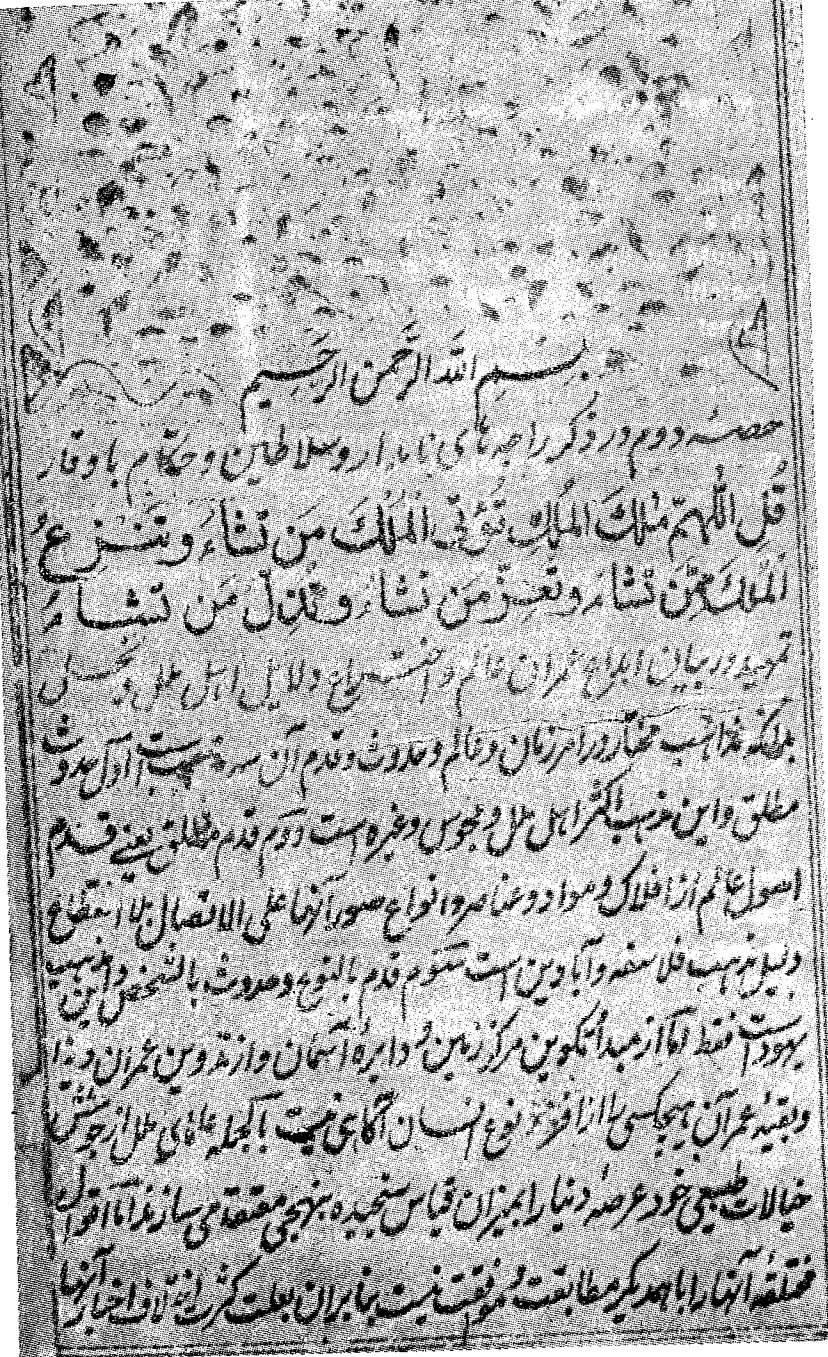 بسم الله الرحمن الرحيم
حصه دوم در ذکر راجه های نامدار و سلاطین و حکام با وقار
قُلِ اللّٰهُمَّ مٰلِكَ المُلكِ تُؤتِی المُلكَ مَن تَشاءُ وتَنزِعُ
المُلكَ مِمَّن تَشاءُ وتُعِزُّ مَن تَشاءُ وتُذِلُّ مَن تَشاءُ
تمهید در بیان ابداع عمران عالم و اختراع دلایل اهل ملل و
بدانکه مذاهب مختار در امر زمان و عالم و حدوث و قدم آن سه مذهب است اول حدوث
مطلق و این مذهب اکثر اهل ملل و مجوس و غیره است دوم قدم مطلق یعنی قدم
اصول عالم از افلاک و مواد و عناصر و انواع صور آنها علی الاتصال بلا انقطاع
و این مذهب فلاسفه و آبادین است سوم قدم بالنوع و حدوث بالشخص و این مذهب
یهود است فقط اما از مبدأ تکوین مرکز زمین و دایرهٔ آسمان و از تدوین عمران دنیا
و بقیهٔ عمر آن هیچکسی را از افراد نوع انسان آگاهی نیست بالجمله علمای ملل از جوشش
خیالات طبیعی خود عرصهٔ دنیا را بمیزان قیاس سنجیده بنهجی معتقد می سازند اما اقوال
مختلفهٔ آنها را با همدیگر مطابقت و موافقت نیست بنابران بعلت کثرت اختلاف اخبار آنها